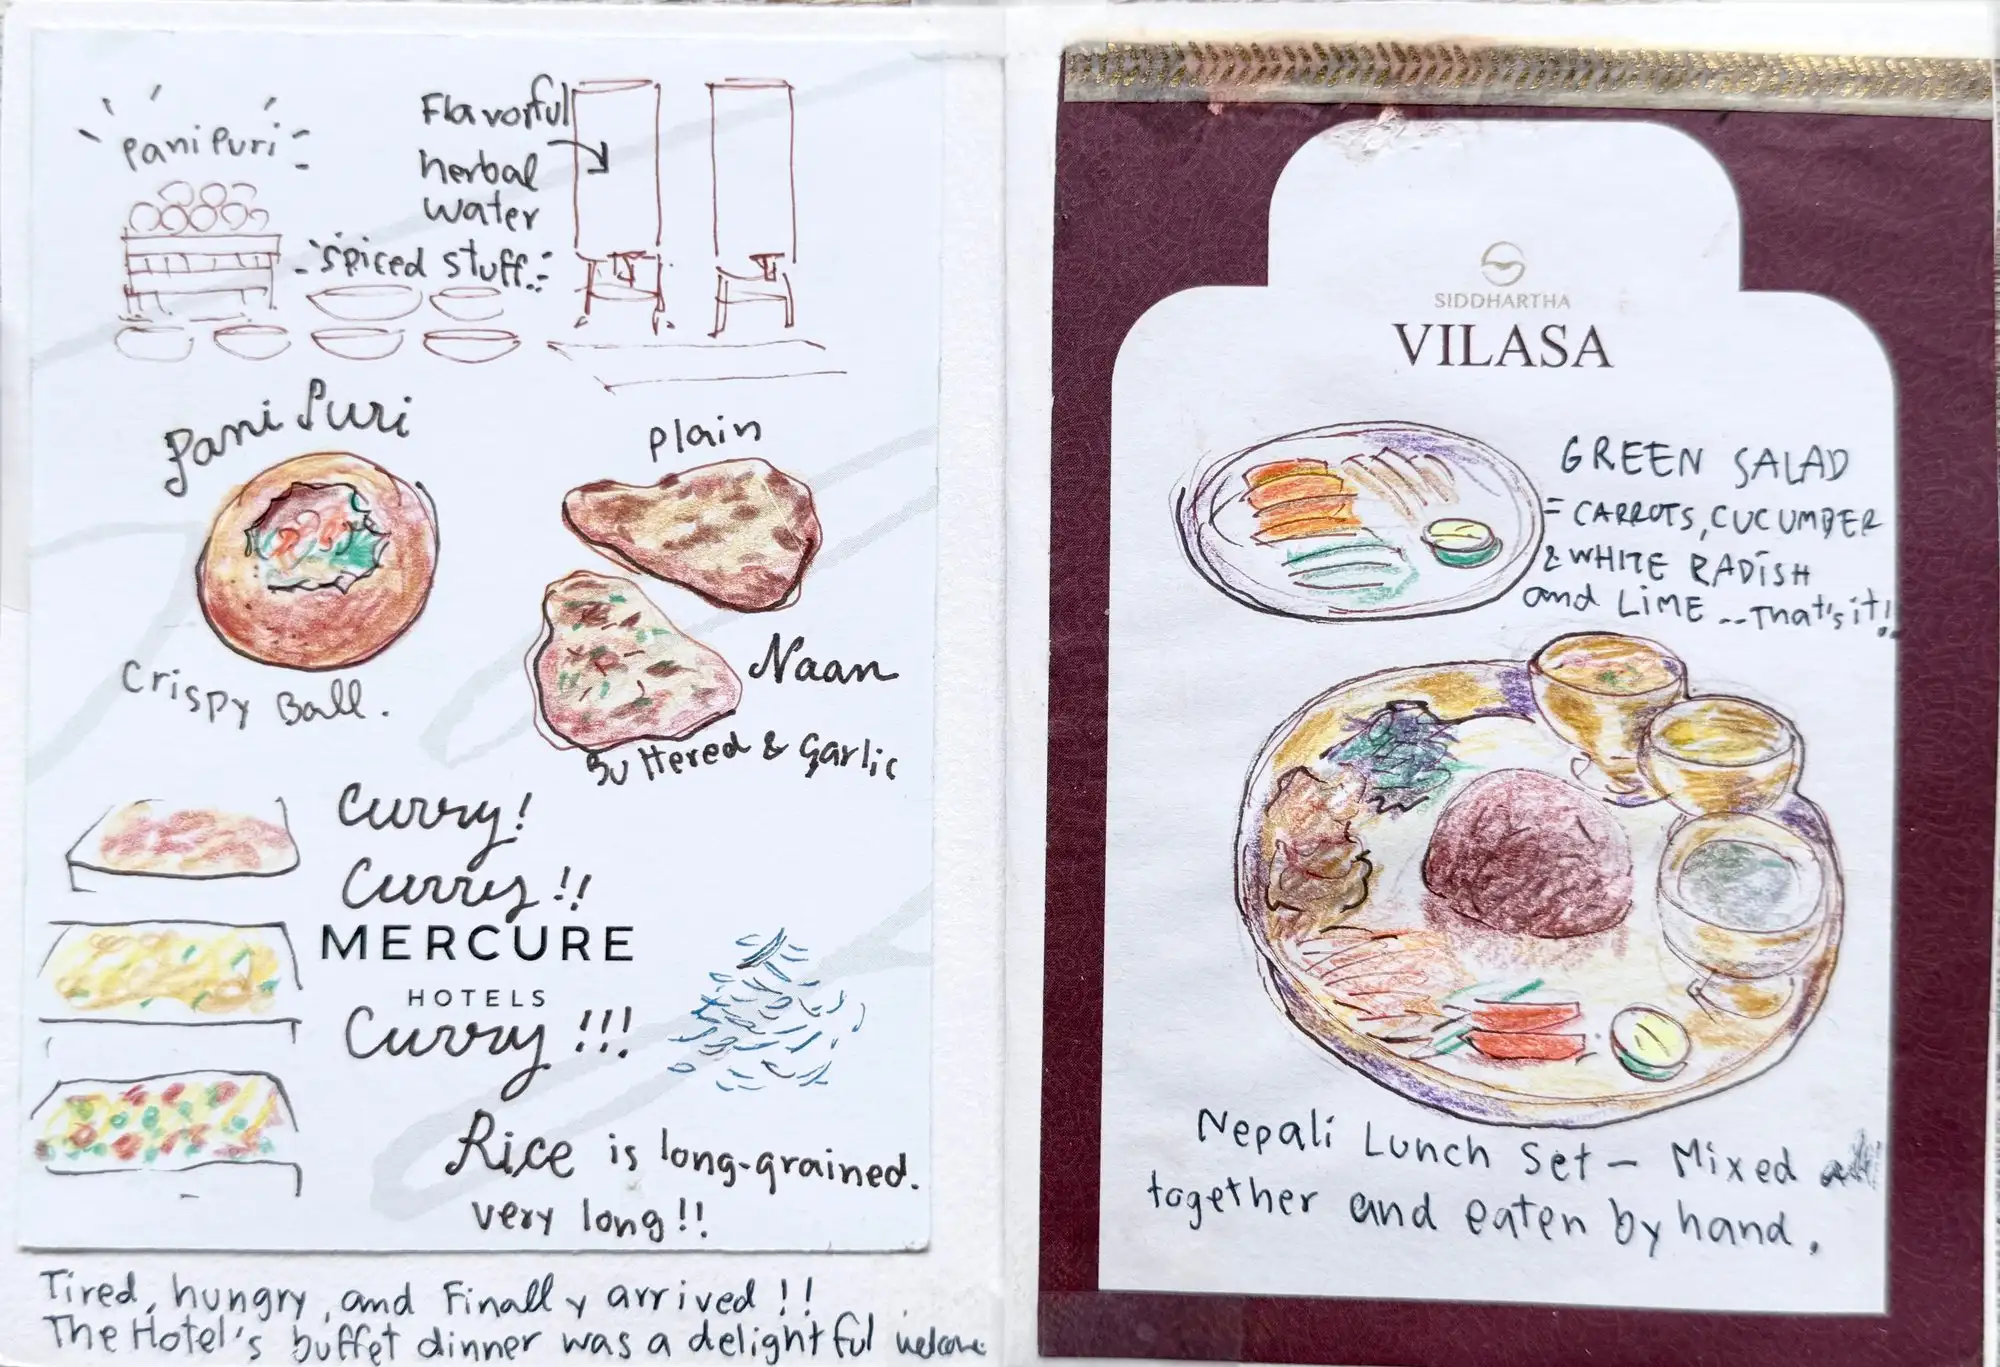 Pani Puri
Flavorful
herbal
water
spiced stuff
Pani Puri
Crispy Ball.
Plain
Naan
Buttered & Garlic
Curry!
Curry!!
MERCURE
HOTELS
Curry!!!
Rice is long-grained.
very long!!
Tired, hungry, and Finally arrived!!
The Hotel's buffet dinner was a delightful welcome
SIDDHARTHA
VILASA
GREEN SALAD
= CARROTS, CUCUMBER
& WHITE RADISH
and LIME ... That's it!
Nepali Lunch Set — Mixed
together and eaten by hand.